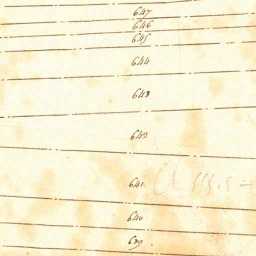 647
646
645
644
643
642
641
640
639